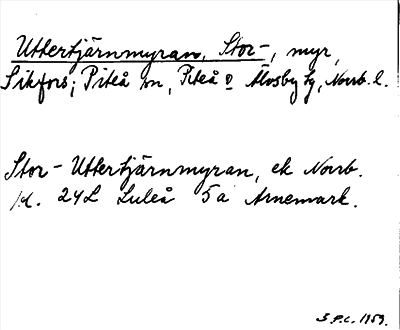 Uttertjärnmyran, Stor-, myr,
Sikfors; Piteå sn, Piteå o Älvsby tg, Norrb. l.
Stor-Uttertjärnmyran, ek Norrb.
bl. 24L Luleå 5a Arnemark.
S.P.C. 1959.